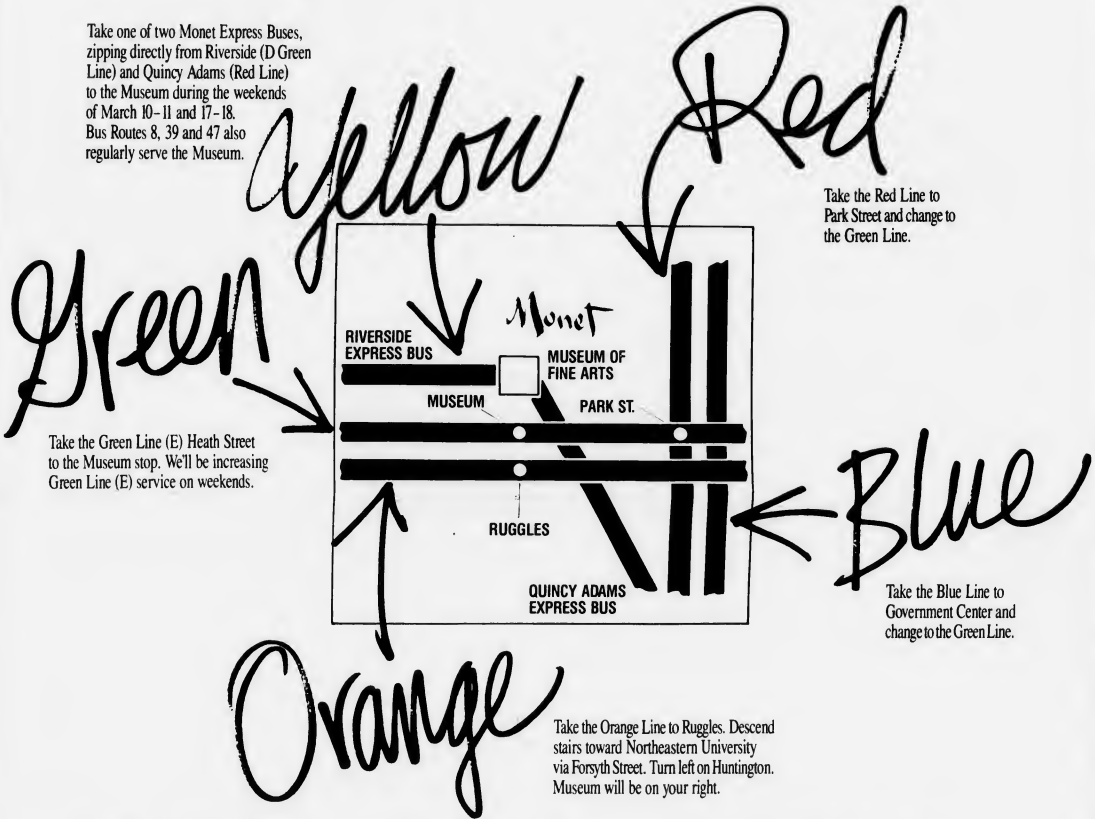 Take one of two Monet Express Buses,
zipping directly from Riverside (D Green
Line) and Quincy Adams (Red Line)
to the Museum during the weekends
of March 10–11 and 17–18.
Bus Routes 8, 39 and 47 also
regularly serve the Museum.
Yellow
Red
Take the Red Line to
Park Street and change to
the Green Line.
Green
Take the Green Line (E) Heath Street
to the Museum stop. We'll be increasing
Green Line (E) service on weekends.
Monet
RIVERSIDE
EXPRESS BUS
MUSEUM OF
FINE ARTS
MUSEUM
PARK ST.
RUGGLES
QUINCY ADAMS
EXPRESS BUS
Blue
Take the Blue Line to
Government Center and
change to the Green Line.
Orange
Take the Orange Line to Ruggles. Descend
stairs toward Northeastern University
via Forsyth Street. Turn left on Huntington.
Museum will be on your right.